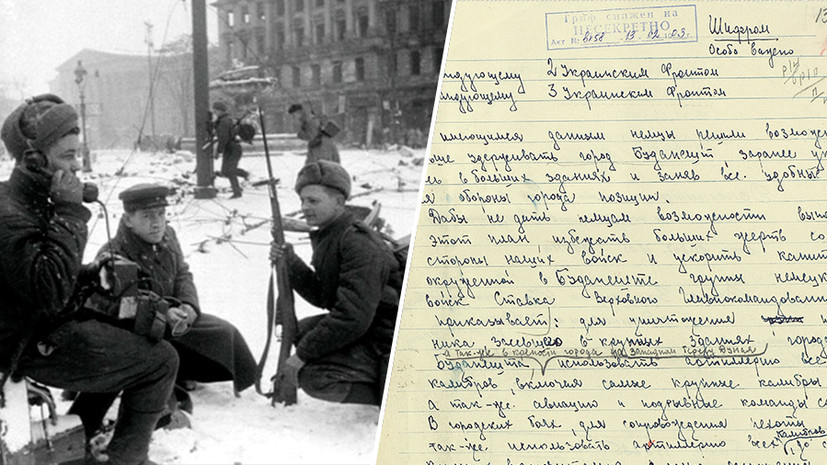 13
Гриф снижен на
НЕСЕКРЕТНО
Акт №
Шифром
Особо важно
ндующему 2 Украинским Фронтом
ндующему 3 Украинским Фронтом
имеющимся данным немцы решили возможн
удерживать город Будапешт, заранее у
в больших зданиях и заняв все удобные
обороны города позиции.
Дабы не дать немцам возможности вып
этот план, избежать больших жертв со
стороны наших войск и ускорить капит
окруженной в Будапеште группы немецк
войск Ставка Верховного Главнокомандовани
приказывает: для уничтожения
ника засевшего в крупных зданиях города
а так-же в крепости города на западном берегу Дуная
Будапешта использовать артиллерию все
калибров, включая самые крупные калибры
а так-же авиацию и подрывные команды с
В городских боях, для сопровождения пехоты
так-же использовать артиллерию всех калибров